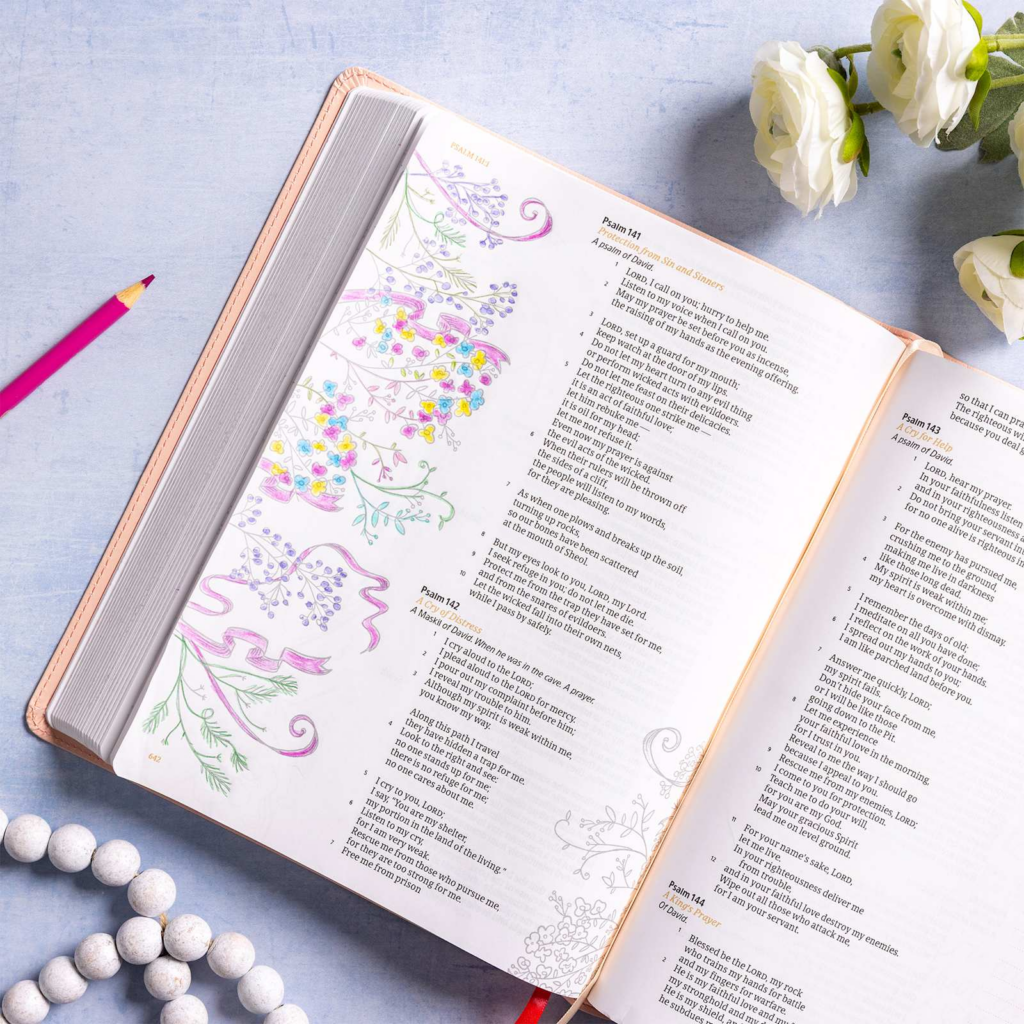 PSALM 141:1
Psalm 141
Protection from Sin and Sinners
A psalm of David.
1 LORD, I call on you; hurry to help me.
Listen to my voice when I call on you.
2 May my prayer be set before you as incense,
the raising of my hands as the evening offering.
3 LORD, set up a guard for my mouth;
keep watch at the door of my lips.
4 Do not let my heart turn to any evil thing
or perform wicked acts with evildoers.
Do not let me feast on their delicacies.
5 Let the righteous one strike me —
it is an act of faithful love;
let him rebuke me —
it is oil for my head;
let me not refuse it.
Even now my prayer is against
the evil acts of the wicked.
6 When their rulers will be thrown off
the sides of a cliff,
the people will listen to my words,
for they are pleasing.
7 As when one plows and breaks up the soil,
turning up rocks,
so our bones have been scattered
at the mouth of Sheol.
8 But my eyes look to you, LORD, my Lord.
I seek refuge in you; do not let me die.
9 Protect me from the trap they have set for me,
and from the snares of evildoers.
10 Let the wicked fall into their own nets,
while I pass by safely.
Psalm 142
A Cry of Distress
A Maskil of David. When he was in the cave. A prayer.
1 I cry aloud to the LORD;
I plead aloud to the LORD for mercy.
2 I pour out my complaint before him;
I reveal my trouble to him.
3 Although my spirit is weak within me,
you know my way.
Along this path I travel
they have hidden a trap for me.
4 Look to the right and see:
no one stands up for me;
there is no refuge for me;
no one cares about me.
5 I cry to you, LORD;
I say, "You are my shelter,
my portion in the land of the living."
6 Listen to my cry,
for I am very weak.
Rescue me from those who pursue me,
for they are too strong for me.
7 Free me from prison
642
so that I can pra
The righteous w
because you deal g
Psalm 143
A Cry for Help
A psalm of David.
1 LORD, hear my prayer.
In your faithfulness listen
and in your righteousness a
2 Do not bring your servant in
for no one alive is righteous in
3 For the enemy has pursued me,
crushing me to the ground,
making me live in darkness
like those long dead.
4 My spirit is weak within me;
my heart is overcome with dismay.
5 I remember the days of old;
I meditate on all you have done;
I reflect on the work of your hands.
6 I spread out my hands to you;
I am like parched land before you.
7 Answer me quickly, LORD;
my spirit fails.
Don't hide your face from me,
or I will be like those
going down to the Pit.
8 Let me experience
your faithful love in the morning,
for I trust in you.
Reveal to me the way I should go
because I appeal to you.
9 Rescue me from my enemies, LORD;
I come to you for protection.
10 Teach me to do your will,
for you are my God.
May your gracious Spirit
lead me on level ground.
11 For your name's sake, LORD,
let me live.
In your righteousness deliver me
from trouble,
12 and in your faithful love destroy my enemies.
Wipe out all those who attack me,
for I am your servant.
Psalm 144
A King's Prayer
Of David.
1 Blessed be the LORD, my rock
who trains my hands for battle
and my fingers for warfare.
2 He is my faithful love and my
my stronghold and my d
He is my shield, an
he subdues m